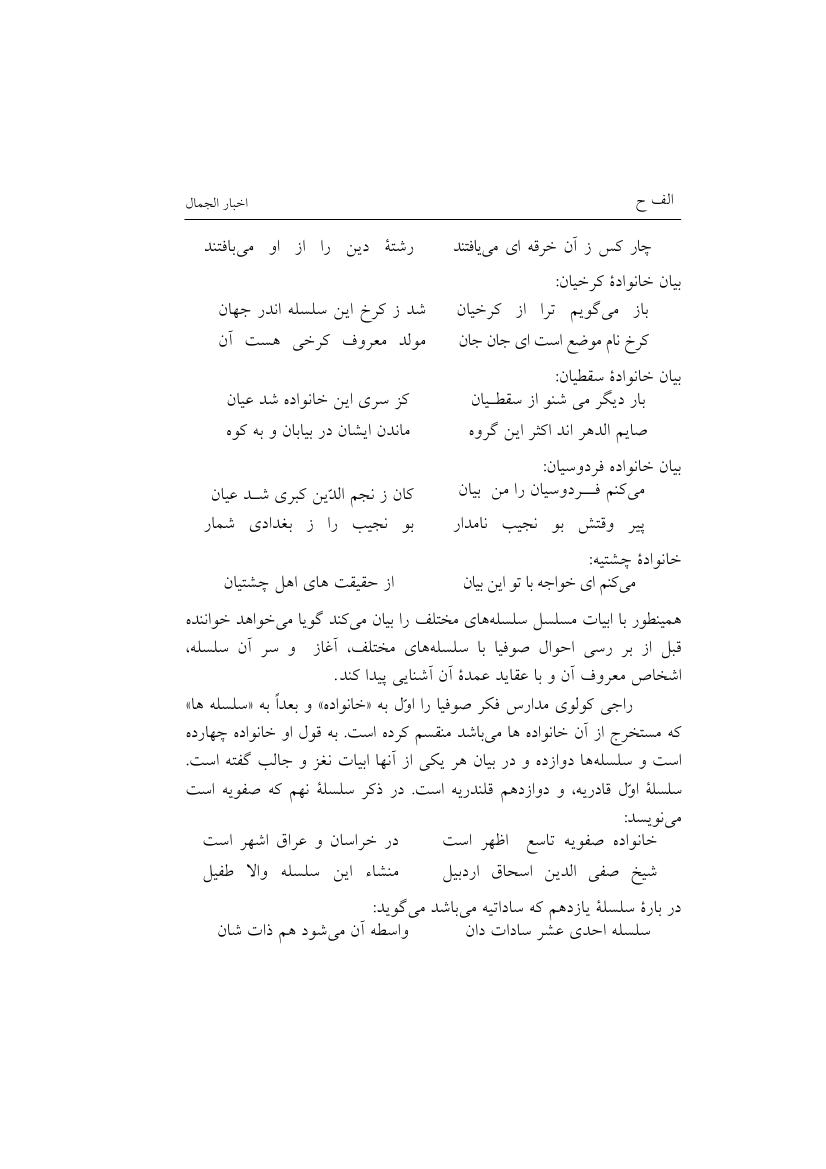 الف ح
اخبار الجمال
چار کس ز آن خرقه ای می‌یافتند رشتهٔ دین را از او می‌بافتند
بیان خانوادهٔ کرخیان:
باز می‌گویم ترا از کرخیان شد ز کرخ این سلسله اندر جهان
کرخ نام موضع است ای جان جان مولد معروف کرخی هست آن
بیان خانوادهٔ سقطیان:
بار دیگر می شنو از سقطـیان کز سری این خانواده شد عیان
صایم الدهر اند اکثر این گروه ماندن ایشان در بیابان و به کوه
بیان خانواده فردوسیان:
می‌کنم فـــردوسیان را من بیان کان ز نجم الدّین کبری شــد عیان
پیر وقتش بو نجیب نامدار بو نجیب را ز بغدادی شمار
خانوادهٔ چشتیه:
می‌کنم ای خواجه با تو این بیان از حقیقت های اهل چشتیان
همینطور با ابیات مسلسل سلسله‌های مختلف را بیان می‌کند گویا می‌خواهد خواننده
قبل از بر رسی احوال صوفیا با سلسله‌های مختلف، آغاز و سر آن سلسله،
اشخاص معروف آن و با عقاید عمدهٔ آن آشنایی پیدا کند.
راجی کولوی مدارس فکر صوفیا را اوّل به «خانواده» و بعداً به «سلسله ها»
که مستخرج از آن خانواده ها می‌باشد منقسم کرده است. به قول او خانواده چهارده
است و سلسله‌ها دوازده و در بیان هر یکی از آنها ابیات نغز و جالب گفته است.
سلسلهٔ اوّل قادریه، و دوازدهم قلندریه است. در ذکر سلسلهٔ نهم که صفویه است
می‌نویسد:
خانواده صفویه تاسع اظهر است در خراسان و عراق اشهر است
شیخ صفی الدین اسحاق اردبیل منشاء این سلسله والا طفیل
در بارهٔ سلسلهٔ یازدهم که ساداتیه می‌باشد می‌گوید:
سلسله احدی عشر سادات دان واسطه آن می‌شود هم ذات شان